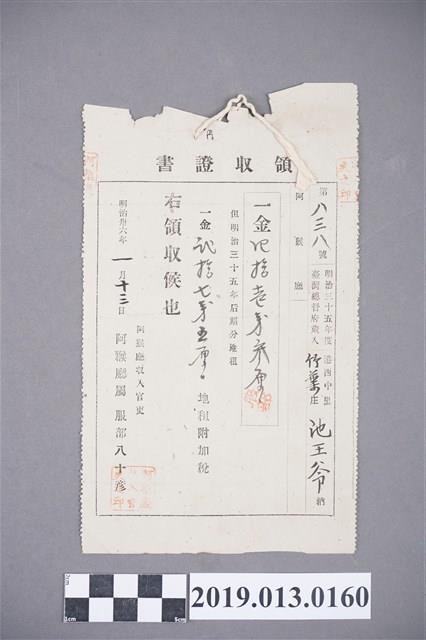 領收證書
第八三八號
明治三十五年度
臺灣總督府歲入
港西中里
竹葉庄
池王爺 納
阿猴廳
一金四拾壱錢弐厘
但明治三十五年后期分地租
一金弐拾七錢五厘
地租附加稅
右領收候也
明治卅六年一月十三日
阿猴廳收入官吏
阿猴廳屬 服部八十彥
1cm
5cm
2019.013.0160